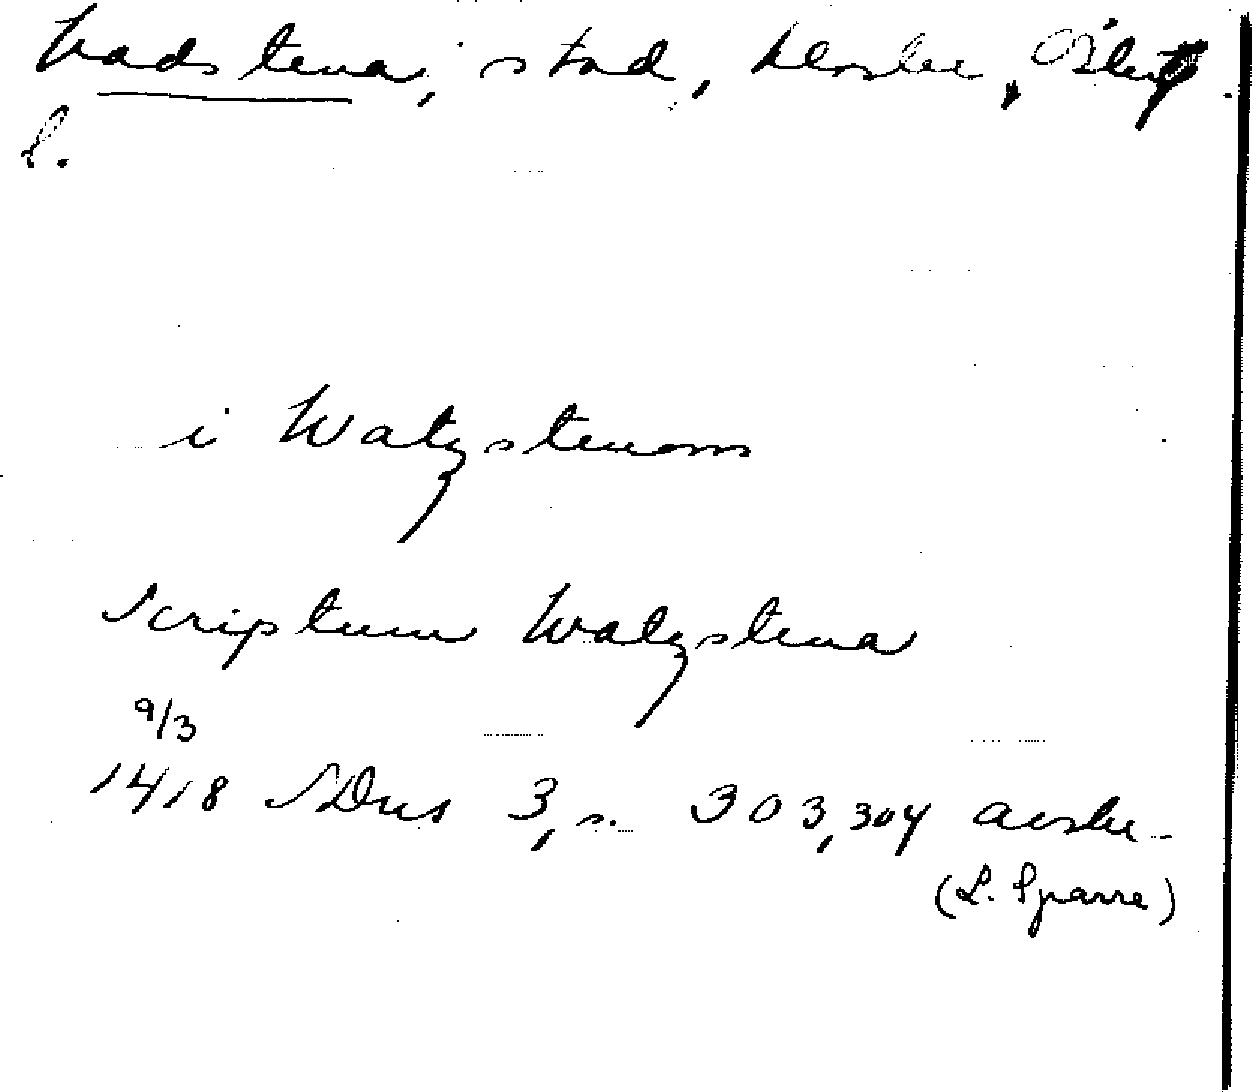 Vadstena, stad, kloster, Östergötl.
l.
i Watzstenom
Scriptum Watzstena
9/3
1418 SDns 3, s. 303, 304 avskr.
(L. Sparre)